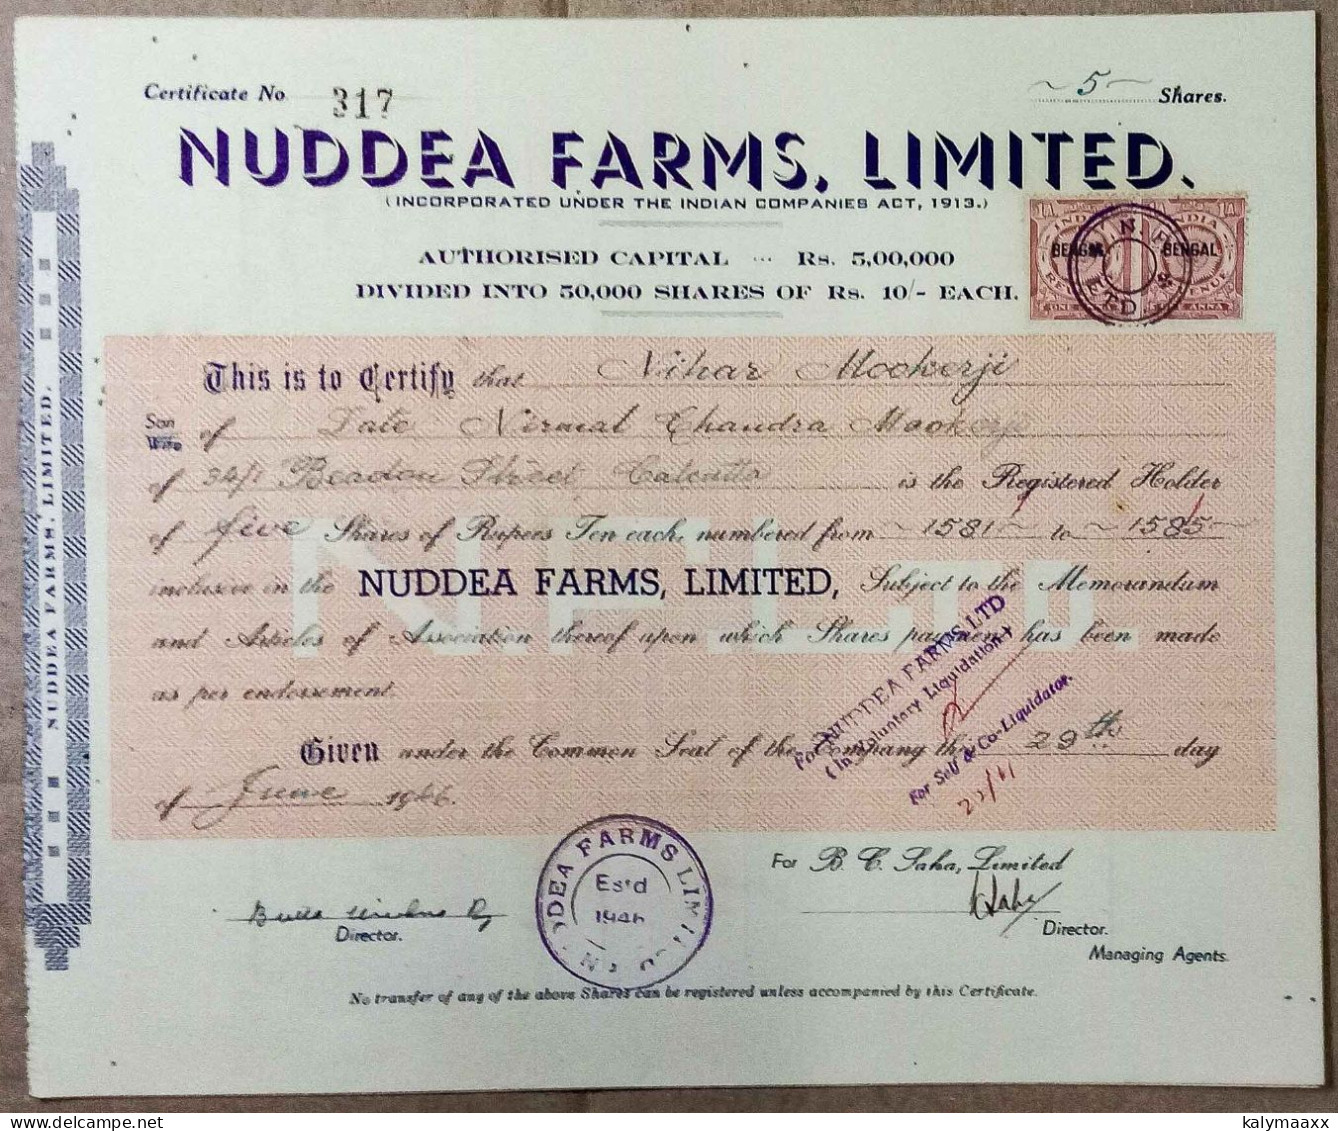 Certificate No. 317
5 Shares.
NUDDEA FARMS, LIMITED.
(INCORPORATED UNDER THE INDIAN COMPANIES ACT, 1913.)
AUTHORISED CAPITAL ... Rs. 5,00,000
DIVIDED INTO 50,000 SHARES OF Rs. 10/- EACH.
1A INDIA 1A INDIA
BENGAL BENGAL
This is to Certify that Nihar Mookerji
Son
Wife of Late Nirmal Chandra Mookerji
of 34/1 Beadon Street, Calcutta is the Registered Holder
of five Shares of Rupees Ten each, numbered from ~1581~ to ~1585~
inclusive in the NUDDEA FARMS, LIMITED, Subject to the Memorandum
and Articles of Association thereof upon which Shares payment has been made
as per endorsement.
Given under the Common Seal of the Company this 29th day
of June 1946.
N.F.Ltd.
For NUDDEA FARMS LTD
(In Voluntary Liquidation)
For Self & Co-Liquidator.
NUDDEA FARMS LIMITED
Estd
1946
For B. C. Saha, Limited
Director.
Director.
Managing Agents.
No transfer of any of the above Shares can be registered unless accompanied by this Certificate.
NUDDEA FARMS, LIMITED.
kalymaaxx